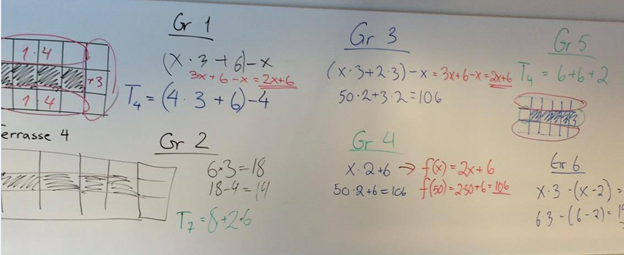 1·4
+3
1 4
Terrasse 4
Gr 1
(x·3+6)-x
3x+6-x=2x+6
T4=(4·3+6)-4
Gr 2
6·3=18
18-4=14
T7=8+2·6
Gr 3
(x·3+2·3)-x=3x+6-x=2x+6
50·2+3·2=106
Gr 4
x·2+6 → f(x)=2x+6
50·2+6=106 f(50)=2·50+6=106
Gr 5
T4=6+6+2
Gr 6
x·3-(x-2)=
6·3-(6-2)=